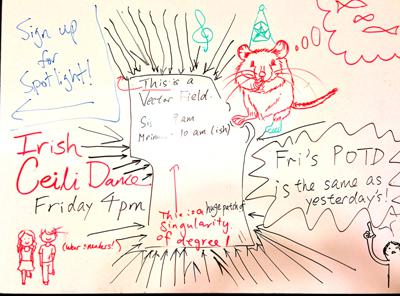 Sign up
for
Spotlight!
This is a
Vector Field.
9am
10 am (ish)
Irish
Ceili Dance
Friday 4pm
(wear sneakers!)
This is a huge patch of
Singularity
of degree 1
Fri's POTD
is the same as
yesterday's!